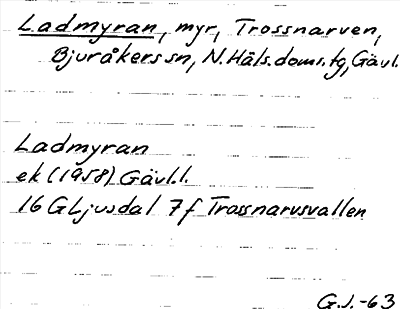 Ladmyran, myr, Trossnarven,
Bjuråkers sn, N. Häls. doms. tg, Gävl.
Ladmyran
ek (1958) Gävl.l.
16 G Ljusdal 7f Trossnarvsvallen
G.J. -63